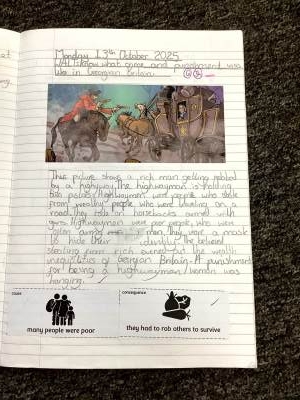 Monday 13th October 2025
WALT: know what crime and punishment was
like in Georgian Britain.
This picture shows a rich man getting robbed
by a highway. The highwayman is holding
pistols. Highwaymen were people who stole
from wealthy people who were traveling on a
road. They rode on horsebacks armed with
guns. Highwaymen were poor people who were
men. They wore a mask
to hide their identity. The believed
stealing from rich evened out the wealth
inequalities of Georgian Britain. A punishment
for being a highwayman/woman was
hanging.
cause
many people were poor
consequence
they had to rob others to survive